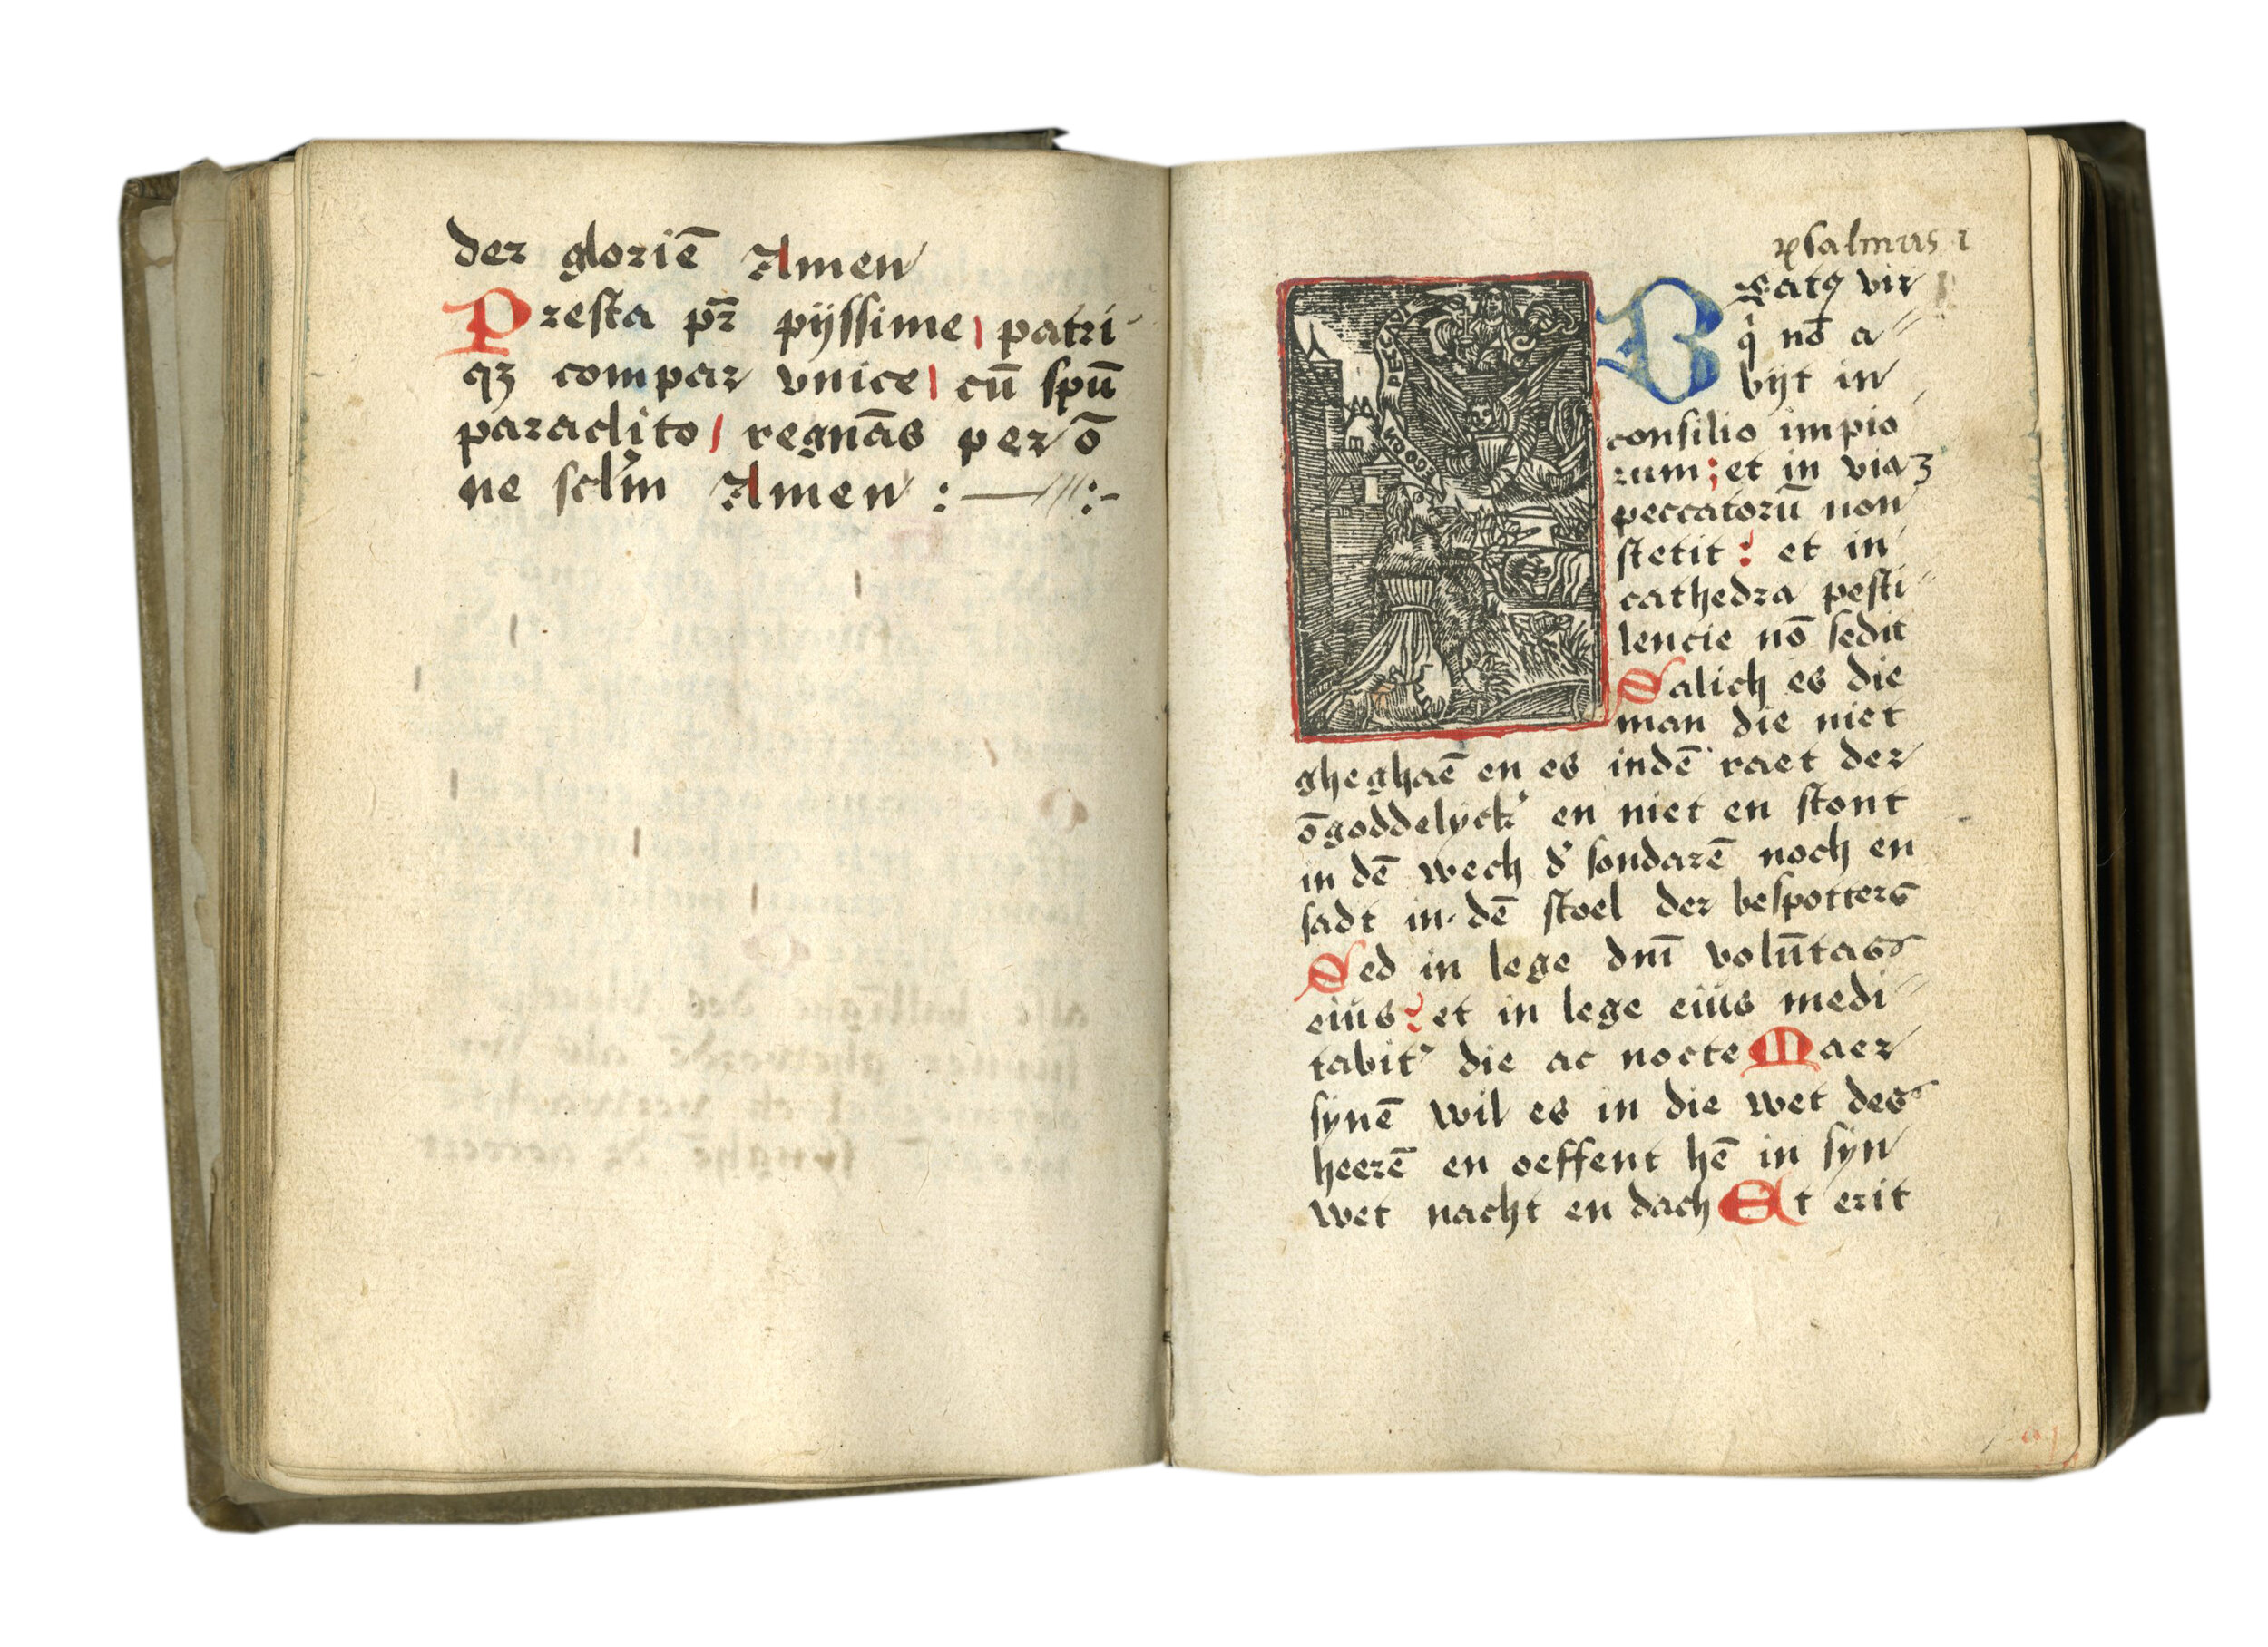 der gloriē Amen
Presta pr̄ pijssime / patri
qꝫ compar vnice / cū spū
paraclito / regnās per ō
ne scl̄m Amen :—:-
psalmus 1
Beatꝯ vir
qͥ nō a
bijt in
consilio impio
rum ; et in viaꝫ
peccatorū non
stetit : et in
cathedra pesti
lencie nō sedit
Salich es die
man die niet
gheghaē en es indē raet der
ōgoddelyckʼ en niet en stont
in dē wech dʼ sondarē noch en
sadt in dē stoel der bespotters
Sed in lege dnī volūtas
eiūs : et in lege eiūs medi
tabitʼ die ac nocte Maer
synē wil es in die wet des
heerē en oeffent hē in syn
wet nacht en dach Et erit